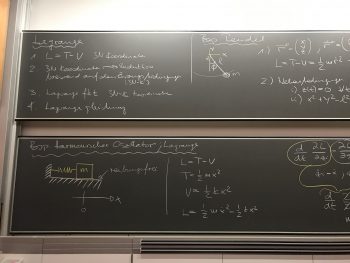 Lagrange
1. L = T - V 3N Koordinate
2. 3N Koordinate Reduktion
basierend auf den Zwangsbedingungen
(3N-K)
3. Lagrange fkt 3N-K Koordinate
4. Lagrange gleichung
Bsp. Pendel
x
y
m
1.)
L = T - V = 1/2 m
2) Nebenbedingungen
i) z(t) = 0
ii) x² + y²
Bsp. harmonischer Oszillator / Lagrange
m
reibungsfrei
0
x
L = T - V
T = 1/2 m ẋ²
V = 1/2 k x²
L = 1/2 m ẋ² - 1/2 k x²
d/dt ∂L
d/dt